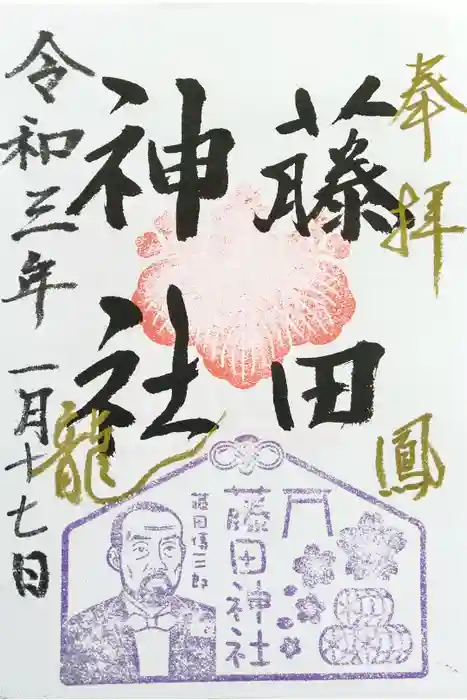 奉拝
藤田
神社
鳳
龍
令和三年一月十七日
藤田神社
藤田傳三郎